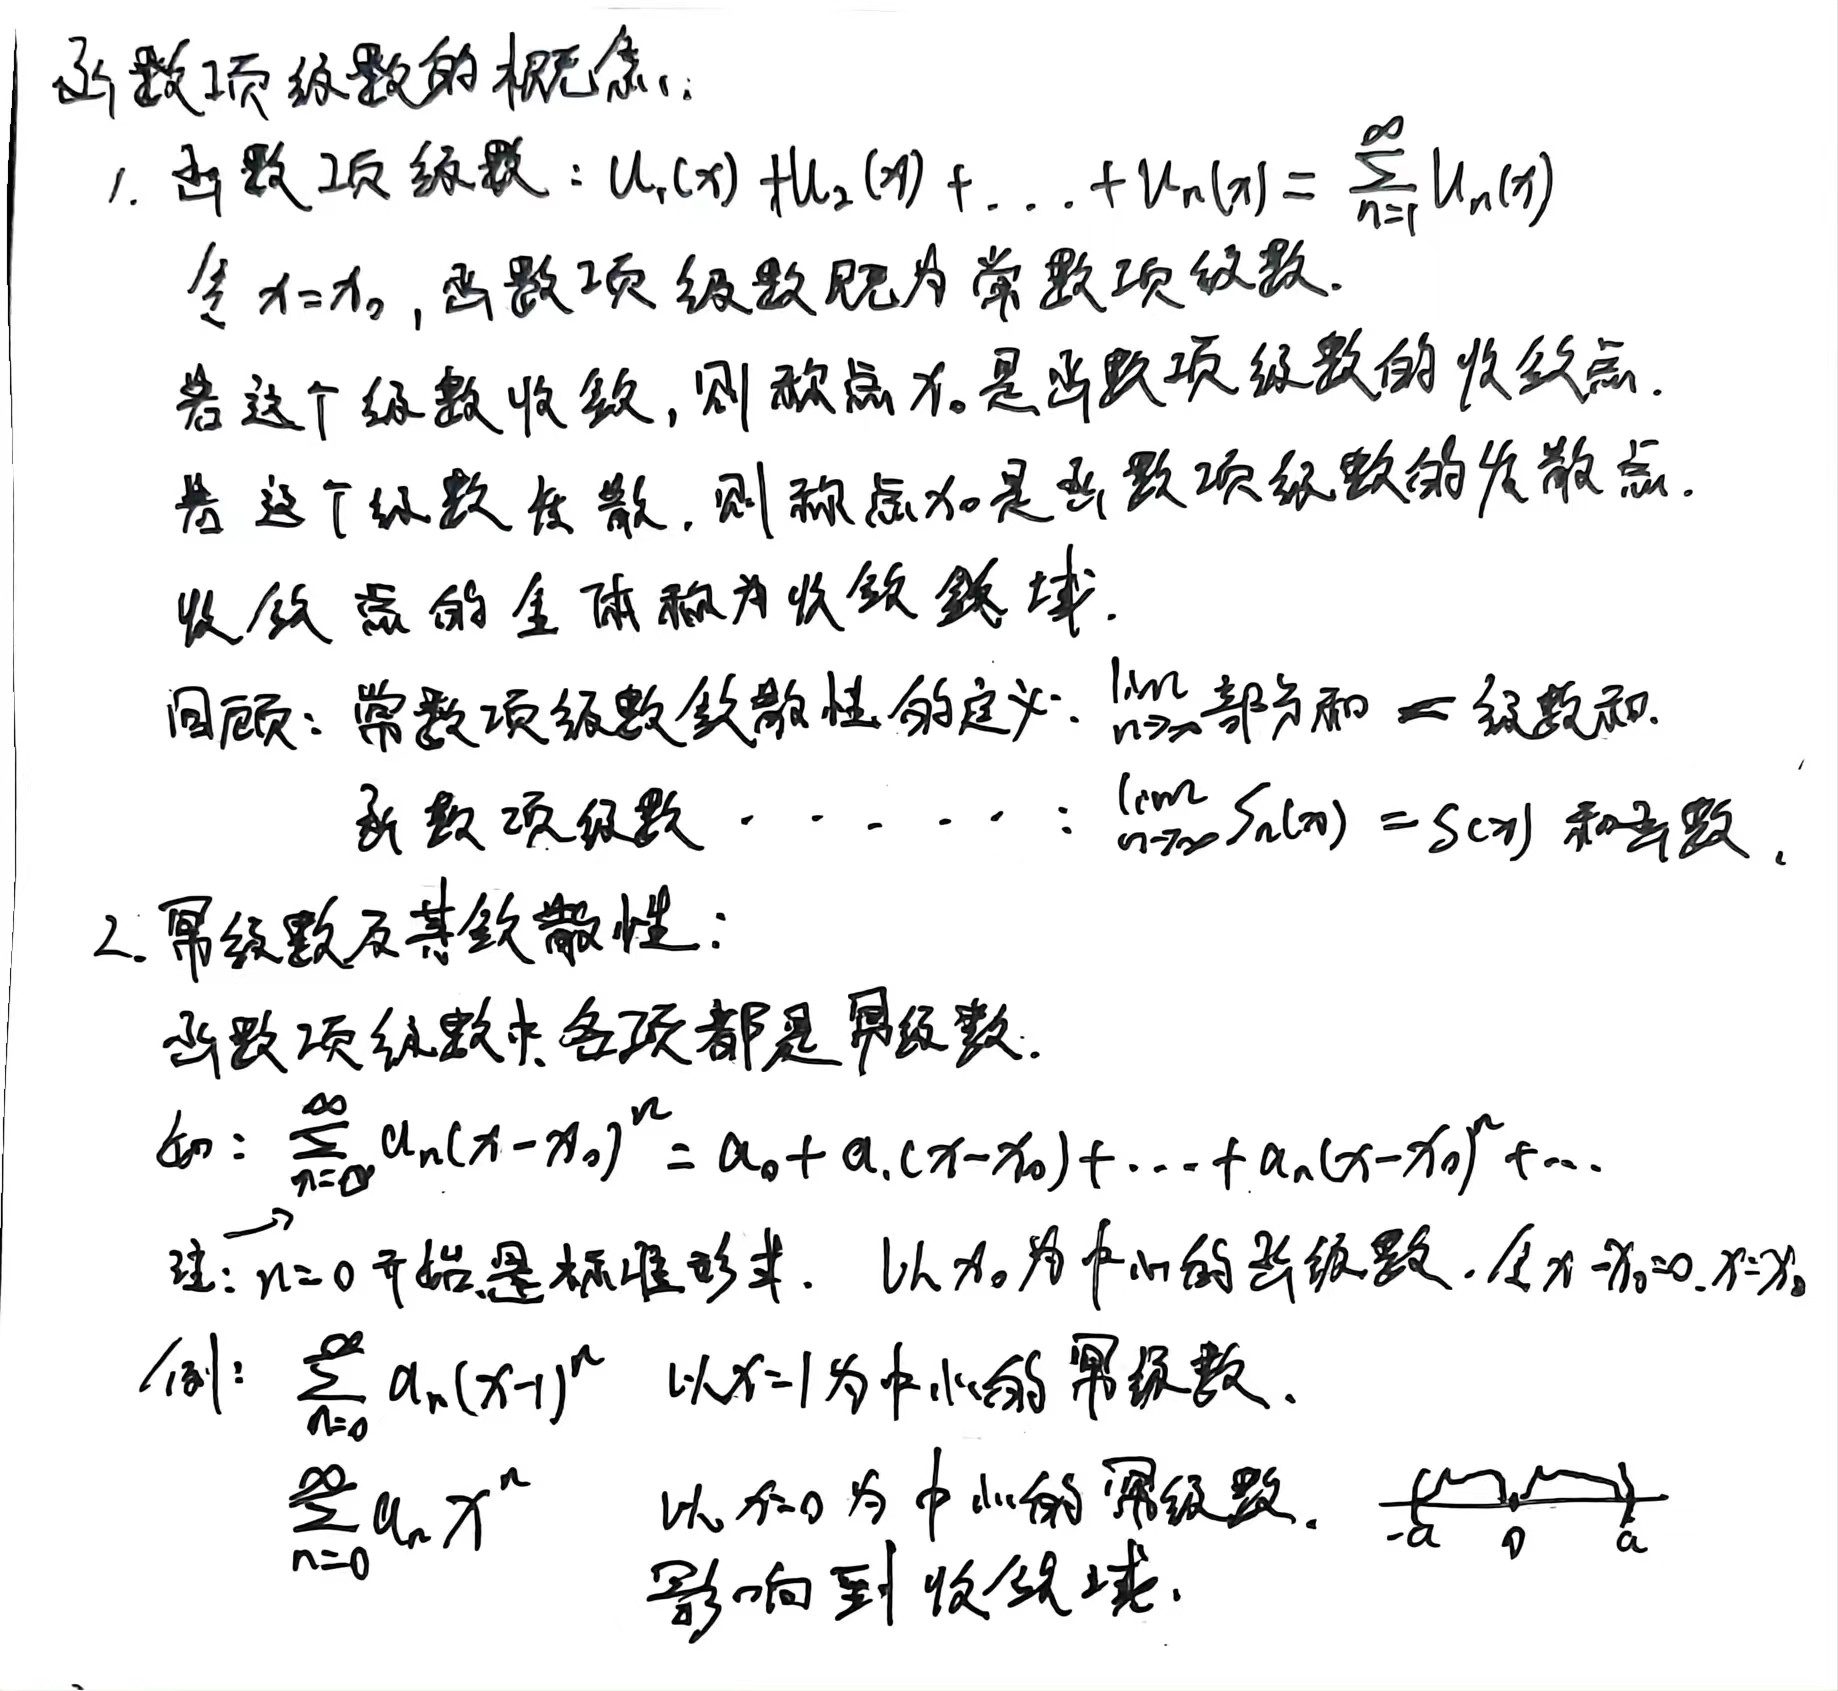 函数项级数的概念:
1. 函数项级数: u₁(x)+u₂(x)+....+uₙ(x)=∑_{n=1}^{∞}uₙ(x)
令x=x₀,函数项级数既为常数项级数.
若这个级数收敛,则称点x₀是函数项级数的收敛点.
若这个级数发散,则称点x₀是函数项级数的发散点.
收敛点的全体称为收敛域.
回顾: 常数项级数敛散性的定义: lim_{n→∞}部分和=级数和.
函数项级数 · · · · · · : lim_{n→∞}Sₙ(x)=S(x)和函数.
2. 幂级数及其敛散性:
函数项级数中各项都是幂级数.
如: ∑_{n=0}^{∞}aₙ(x-x₀)ⁿ=a₀+a₁(x-x₀)+....+aₙ(x-x₀)ⁿ+...
注: n=0开始是标准形式. 以x₀为中心的函级数.令x-x₀=0.x=x₀
例: ∑_{n=0}^{∞}aₙ(x-1)ⁿ 以x=1为中心的幂级数.
∑_{n=0}^{∞}aₙxⁿ 以x=0为中心的幂级数. -a 0 a
影响到收敛域.